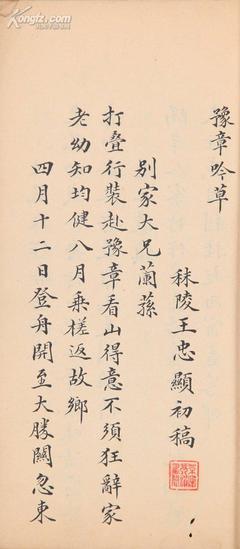 Kongfz.com
豫章吟草
秣陵王忠顯初稿
別家大兄蘭蓀
打叠行裝赴豫章看山得意不須狂辭家
老幼知均健八月乘槎返故鄉
四月十二日登舟開至大勝關忽東